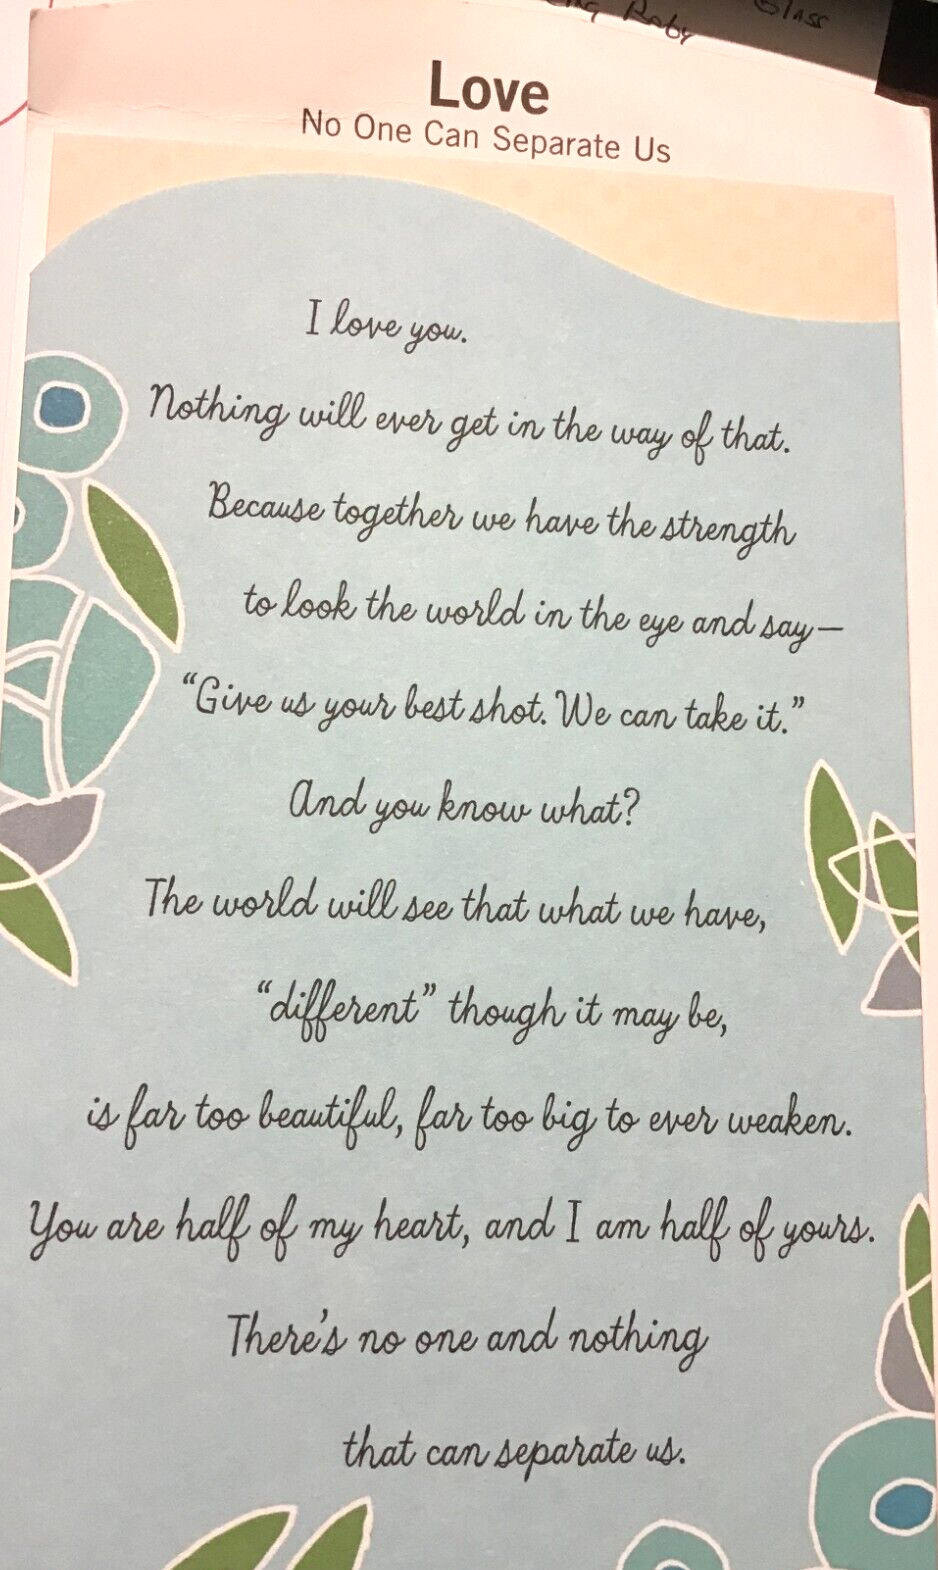 Raby Glass
Love
No One Can Separate Us
I love you.
Nothing will ever get in the way of that.
Because together we have the strength
to look the world in the eye and say—
“Give us your best shot. We can take it.”
And you know what?
The world will see that what we have,
“different” though it may be,
is far too beautiful, far too big to ever weaken.
You are half of my heart, and I am half of yours.
There's no one and nothing
that can separate us.